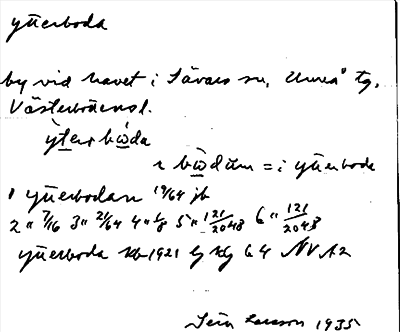 ytterboda
by vid havet i Sävars sn, Umeå tg,
Västerbottensl.
yterboda
i bodum = i ytterboda
1 ytterbodan 19/64 jb
2 " 7/16 3 " 21/64 4 " 1/8 5 " 121/2048 6 " 121/2048
ytterboda kb 1921 64 NV A2
Larsson 1935